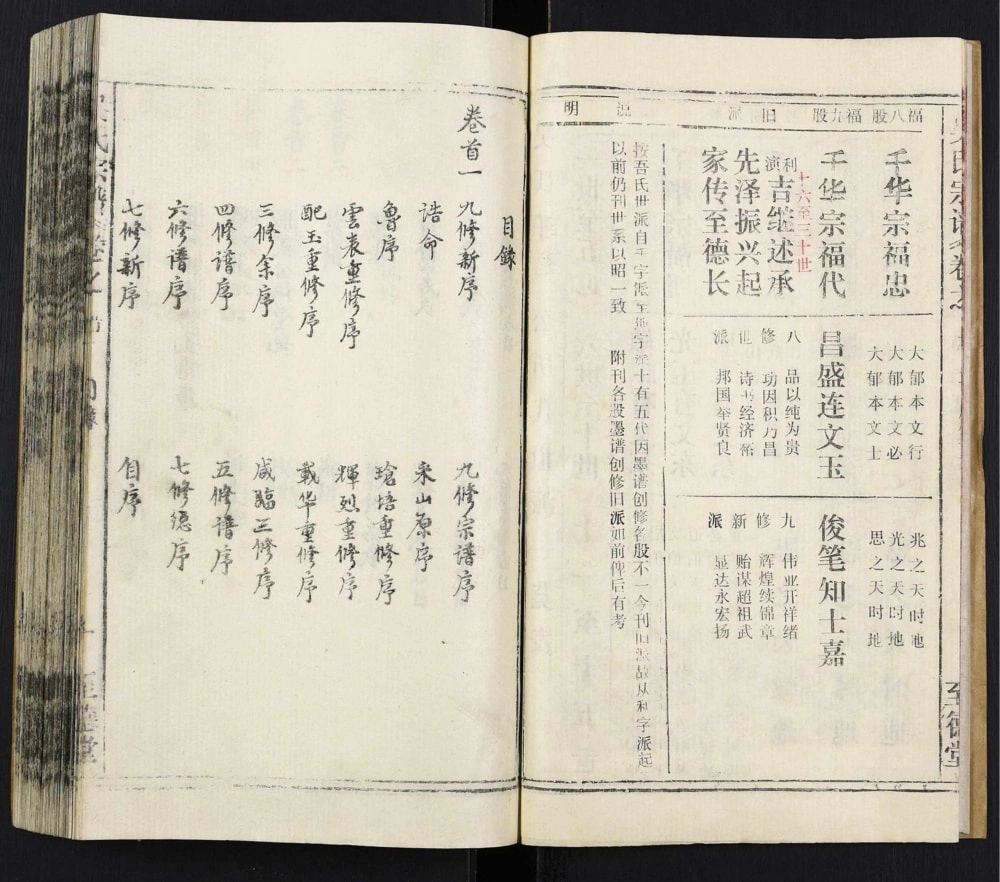 吴氏宗谱卷之
至德堂
福八股
福九股
旧派
说明
千华宗福忠
大郁本文行
大郁本文必
大郁本文士
兆之天时地
光之天时地
思之天时地
千华宗福代
昌盛连文玉
俊笔知士嘉
十六至三十世
利演吉继述承
先泽振兴起
家传至德长
八修世派
品以纯为贵
功因积乃昌
诗书经济裕
邦国举贤良
九修新派
伟业开祥绪
辉煌续锦章
贻谋超祖武
显达永宏扬
按吾氏世派自千字派至地字派十有五代因墨谱创修各股不一今刊旧派故从利字派起
以前仍刊世系以昭一致 附刊各投墨谱创修旧派如前俾后有考
目錄
卷首一
九修新序
九修宗谱序
诰命
采山原序
魯序
瑲培重修序
雲表重修序
輝烈重修序
配玉重修序
載华重修序
三修余序
咸臨三修序
四修谱序
五修谱序
六修谱序
七修總序
七修新序
自序
氏宗譜卷之首
目錄
一
至德堂